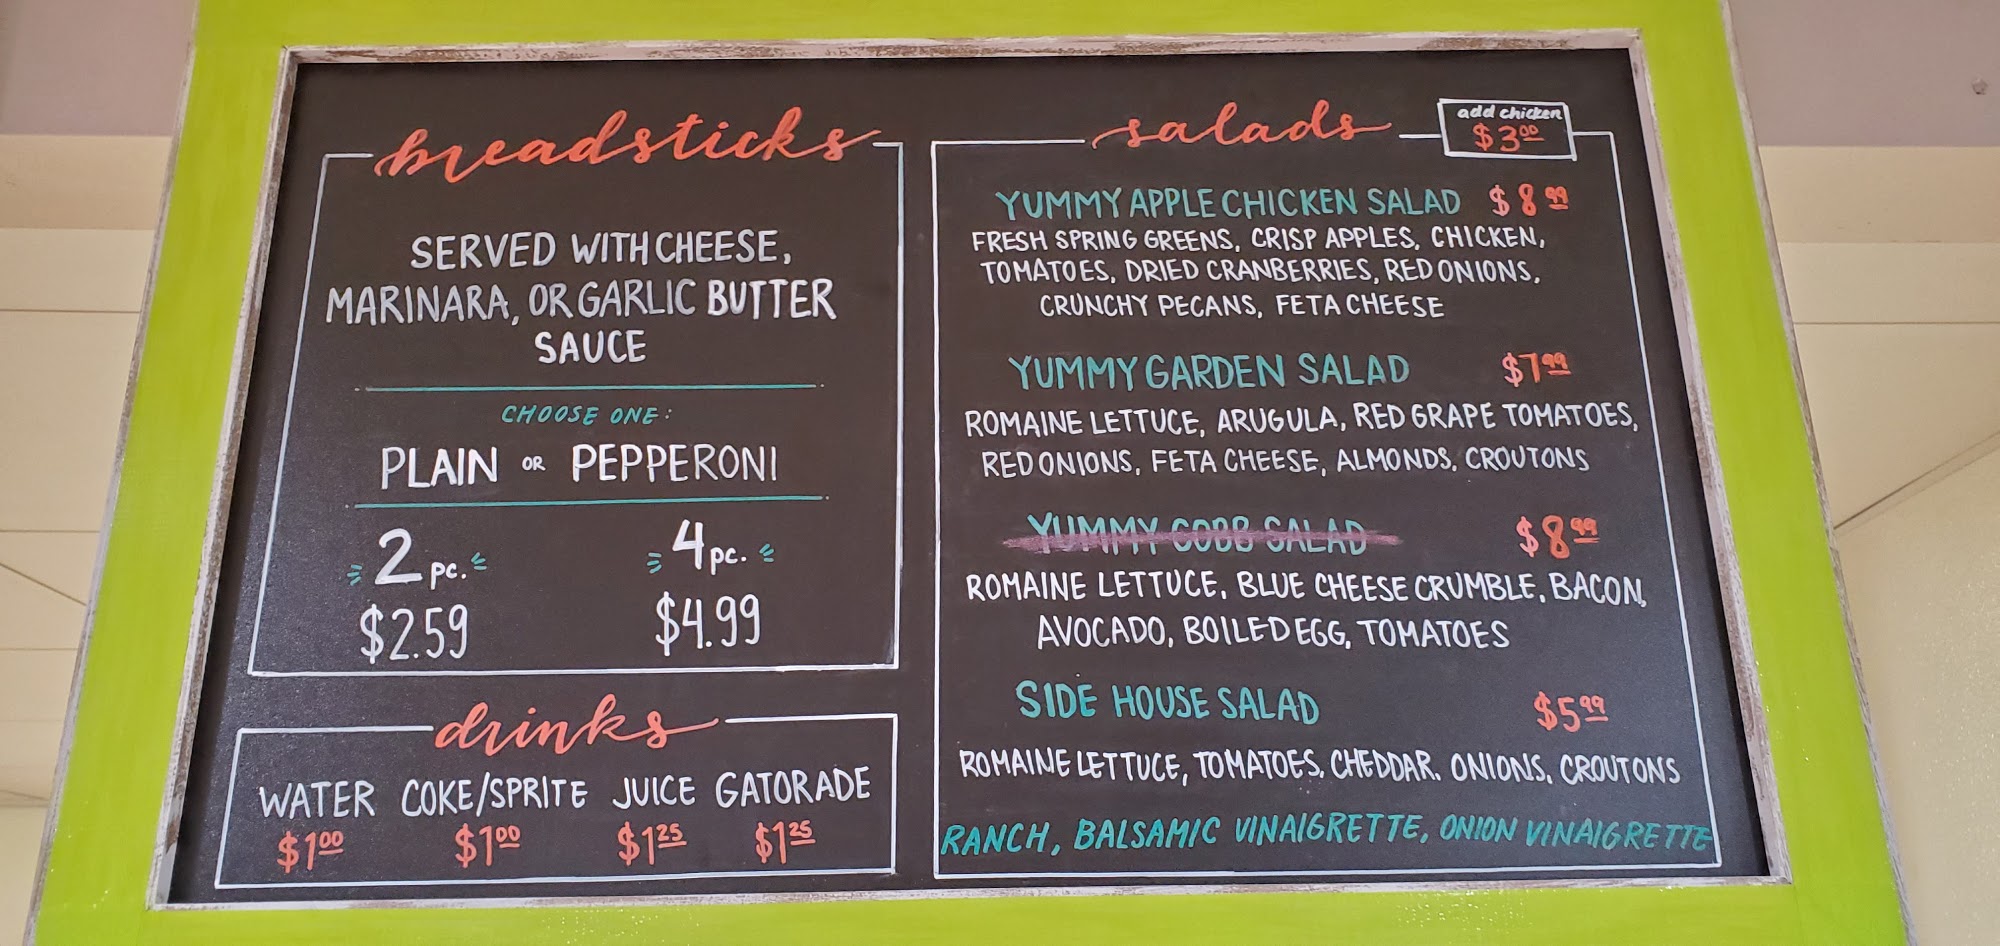 breadsticks
SERVED WITH CHEESE,
MARINARA, OR GARLIC BUTTER
SAUCE
CHOOSE ONE:
PLAIN OR PEPPERONI
2 pc. 4 pc.
$2.59 $4.99
drinks
WATER COKE/SPRITE JUICE GATORADE
$1.00 $1.00 $1.25 $1.25
salads
add chicken
$3.00
YUMMY APPLE CHICKEN SALAD $8.99
FRESH SPRING GREENS, CRISP APPLES, CHICKEN,
TOMATOES, DRIED CRANBERRIES, RED ONIONS,
CRUNCHY PECANS, FETA CHEESE
YUMMY GARDEN SALAD $7.99
ROMAINE LETTUCE, ARUGULA, RED GRAPE TOMATOES,
RED ONIONS, FETA CHEESE, ALMONDS, CROUTONS
YUMMY COBB SALAD $8.99
ROMAINE LETTUCE, BLUE CHEESE CRUMBLE, BACON,
AVOCADO, BOILED EGG, TOMATOES
SIDE HOUSE SALAD $5.99
ROMAINE LETTUCE, TOMATOES, CHEDDAR, ONIONS, CROUTONS
RANCH, BALSAMIC VINAIGRETTE, ONION VINAIGRETTE